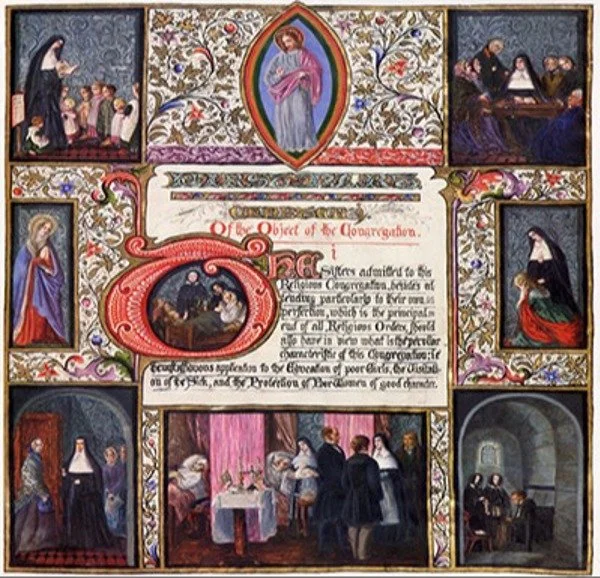 Of the Object of the Congregation.
i
THE Sisters admitted to this
Religious Congregation, besides at
tending particularly to their own
perfection, which is the principal
end of all Religious Orders, should
also have in view what is the peculiar
characteristic of this Congregation: ie
most serious application to the Education of poor Girls, the Visitati
on of the Sick, and the Protection of Poor Women of good character.